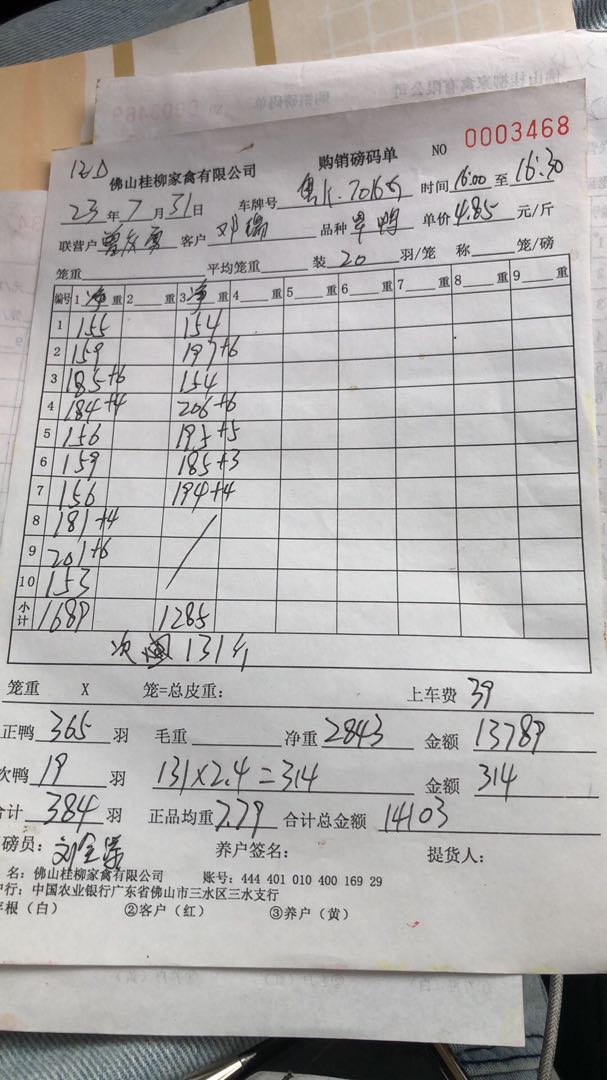 NO 0003468
佛山桂柳家禽有限公司 购销磅码单
23 年 7 月 31 日 车牌号 时间 16:00 至 16:30
联营户 客户 邓锡 品种 单鸭 单价 4.85 元/斤
笼重 平均笼重 装 20 羽/笼 称 笼/磅
编号 1 净 重 2 重 3 净 重 4 重 5 重 6 重 7 重 8 重 9 重
1 155 154
2 159 197+6
3 185+6 154
4 184+4 206+6
5 156 195+5
6 159 185+3
7 156 194+4
8 181+4
9 201+6
10 153
小计 1689 1285
次 131斤
笼重 X 笼=总皮重: 上车费 39
正鸭 365 羽 毛重 净重 2843 金额 13789
次鸭 19 羽 131×2.4=314 金额 314
合计 384 羽 正品均重 7.79 合计总金额 14103
磅员: 养户签名: 提货人:
名: 佛山桂柳家禽有限公司 账号: 444 401 010 400 169 29
户行: 中国农业银行广东省佛山市三水区三水支行
存根(白) ②客户(红) ③养户(黄)